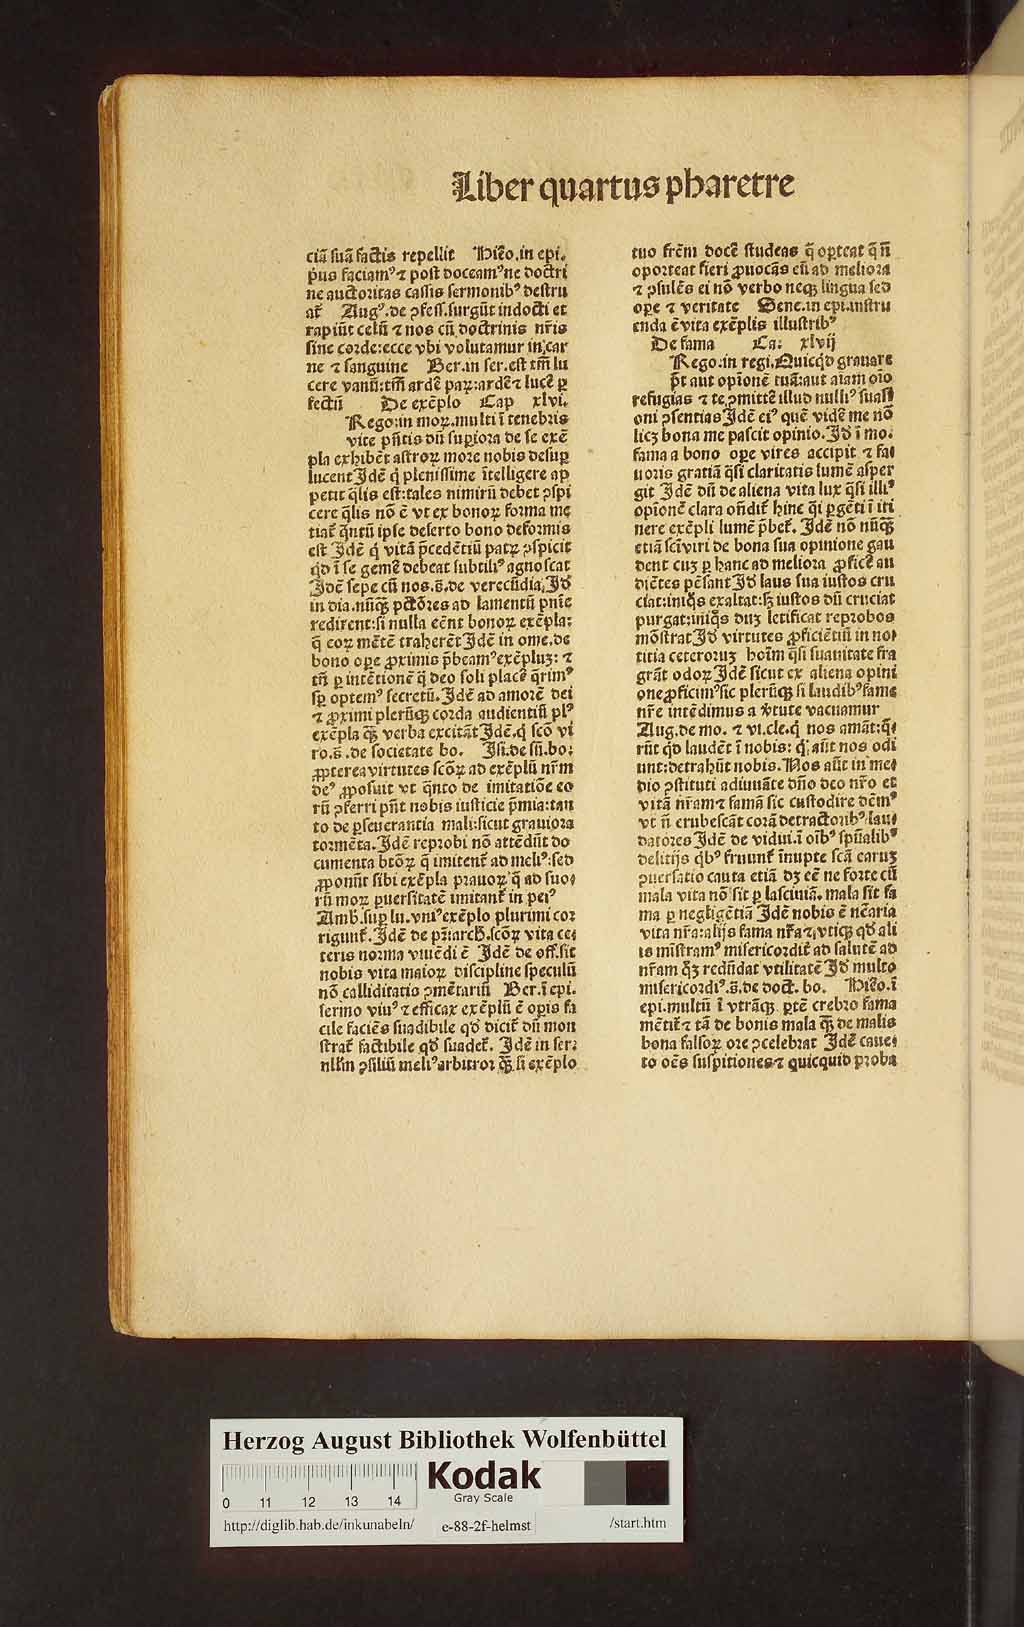 Liber quartus pharetre
ciā suā factis repellit Hiero. in epi.
pꝰ faciamꝰ ⁊ post doceamꝰ ne doctri
ne auctoritas cassis sermonibꝰ destru
at̄ Augꝰ. de ꝯfess. surgūt indocti et
rapiūt celū ⁊ nos cū doctrinis nr̄is
sine corde: ecce vbi volutamur in car
ne ⁊ sanguine Ber. in ser. est tm̄ lu
cere vanū: tm̄ ardē paꝝ: ardē ⁊ lucē ꝑ
fectū De exēplo Cap xlvi.
Rego: in moꝝ. multi ī tenebris
vite pn̄tis dū supiora de se exē
pla exhibēt astroꝝ more nobis desuꝑ
lucent Idē q̄ plenissime ītelligere ap
petit q̄lis est: tales nimirū debet ꝯspi
cere q̄lis nō ē vt ex bonoꝝ forma me
tiat̄ q̄ntū ipse deserto bono deformis
est Idē q̄ vitā p̄cedētiū patꝝ ꝯspicit
qd̄ ī se gemē debeat subtiliꝰ agnoscat
Idē sepe cū nos. s̄. de verecūdia. Id̄
in dia. nūqꝫ pctōres ad lamentū pn̄ie
redirent: si nulla eēnt bonoꝝ exēpla:
q̄ eoꝝ mētē traherēt Idē in ome. de
bono oꝑe ꝓximis p̄beamꝰ exēpluꝫ: ⁊
tn̄ ꝑ intētionē q̄ deo soli placē q̄rimꝰ
sꝑ optemꝰ secretū. Idē ad amorē dei
⁊ ꝓximi plerūqꝫ corda audientiū plꝰ
exēpla qꝫ verba excitāt Idē. q̄ scō vi
ro. s̄. de societate bo. Isi. de sū. bo:
ꝓpterea virtutes scōꝝ ad exēplū nr̄m
deꝰ ꝓposuit vt q̄nto de imitatiōe eo
rū ꝯferri pn̄t nobis iusticie p̄mia: tan
to de ꝑseuerantia mali: sicut grauiora
tormēta. Idē reprobi nō attēdūt do
cumenta btōꝝ q̄ imitent̄ ad meliꝰ: sed
ꝓponūt sibi exēpla prauoꝝ q̄ ad suo
rū moꝝ ꝑuersitatē imitant̄ in peiꝰ
Amb. suꝑ lu. vniꝰ exēplo plurimi cor
rigunt̄. Idē de pr̄iarch̄. scōꝝ vita ce
teris norma viuēdi ē Idē de off. sit
nobis vita maioꝝ discipline speculū
nō calliditatis ꝯmētariū Ber. ī epi.
sermo viuꝰ ⁊ efficax exēplū ē oꝑis fa
cile faciēs suadibile qd̄ dicit̄ dū mon
strat̄ factibile qd̄ suadet̄. Idē in ser:
nllm̄ ꝯsiliū meliꝰ arbitror qꝫ si exēplo
tuo frēm docē studeas q̄ oꝑteat q̄ n̄
oporteat fieri ꝓuocās eū ad meliora
⁊ ꝯsulēs ei nō verbo neqꝫ lingua sed
oꝑe ⁊ veritate Sene. in epi. instru
enda ē vita exēplis illustribꝰ
De fama Ca: xlvij
Rego: in regi. Quicqd̄ grauare
p̄t aut opiōnē tuā: aut aīam oīo
refugias ⁊ te ꝓmittē illud nulliꝰ suasi
oni ꝯsentias Idē eiꝰ quē vidē me nō
licꝫ bona me pascit opinio. Id̄ ī mo.
fama a bono oꝑe vires accipit ⁊ fa
uoris gratiā q̄si claritatis lumē asper
git Idē dū de aliena vita lux q̄si illiꝰ
opiōnē clara on̄dit̄ hinc q̄si ꝑgēti ī iti
nere exēpli lumē p̄bet̄. Idē nō nūqꝫ
etiā scī viri de bona sua opinione gau
dent cuꝫ ꝑ hanc ad meliora ꝓficē au
diētes pēsant Id̄ laus sua iustos cru
ciat: iniq̄s exaltat: sꝫ iustos dū cruciat
purgat: iniq̄s duꝫ letificat reprobos
mōstrat Id̄ virtutes ꝓficiētiū in no
titia ceteroruꝫ hoīm q̄si suauitate fra
grāt odoꝝ Idē sicut ex aliena opini
one ꝓficimꝰ sic plerūqꝫ si laudibꝰ fame
nr̄e intēdimus a v̄tute vacuamur
Aug. de mo. ⁊ vi. cle. q̄ nos amāt: q̄
rūt qd̄ laudēt ī nobis: q̄ aūt nos odi
unt: detrahūt nobis. Nos aūt in me
dio ꝯstituti adiuuāte dn̄o deo nr̄o et
vitā nr̄am ⁊ famā sic custodire dēmꝰ
vt n̄ erubescāt corā detractoribꝰ lau
datores Idē de vidui. ī oībꝰ spūalibꝰ
delitijs qbꝰ fruunt̄ īnupte scā earuꝫ
ꝯuersatio cauta etiā dꝫ eē ne forte cū
mala vita nō sit ꝑ lasciuiā. mala sit fa
ma ꝑ negligētiā Idē nobis ē nēcaria
vita nr̄a: alijs fama nr̄a ⁊ vtiqꝫ qd̄ ali
is mīstramꝰ misericordit̄ ad salutē ad
nr̄am qꝫ redūdat vtilitatē Id̄ multo
misericordiꝰ. s̄. de doct. bo. Hiero. ī
epi. multū ī vtrāqꝫ ꝑtē crebro fama
mētit̄ ⁊ tā de bonis mala qꝫ de malis
bona falsoꝝ ore ꝯcelebrat Idē caue
to oēs suspitiones ⁊ quicquid proba
Herzog August Bibliothek Wolfenbüttel
Kodak
Gray Scale
0 11 12 13 14
http://diglib.hab.de/inkunabeln/ e-88-2f-helmst /start.htm